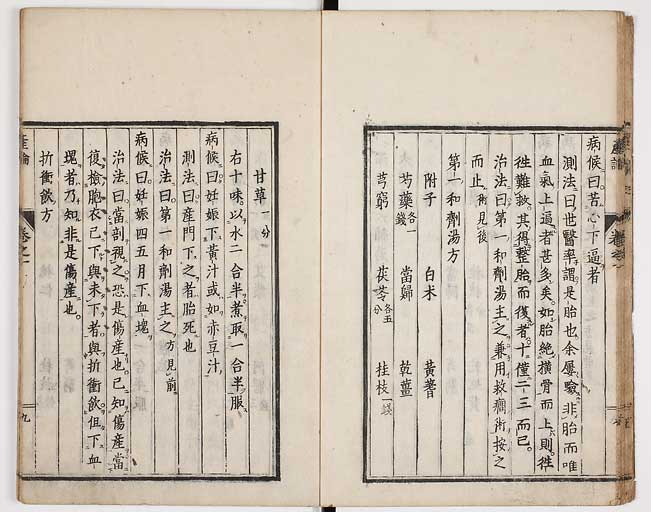 病候曰苦心下逼者
測法曰世醫率謂是胎也余屢驗非胎而唯
血氣上逼者甚多矣如胎絶橫骨而上則徃
徃難救其得整胎而復者十僅二三而已
治法曰第一和劑湯主之兼用救癇術按之
而止術見後
第一和劑湯方
附子 白朮 黃耆
芍藥各一錢 當歸 乾薑
芎窮 茯苓各五分 桂枝一錢
甘草一分
右十味以水二合半煮取一合半服
病候曰妊娠下黃汁或如赤豆汁
測法曰産門下之者胎死也
治法曰第一和劑湯主之方見前
病候曰妊娠四五月下血塊
治法曰當剖視之恐是傷産也已知傷産當
復檢胞衣已下與未下者與折衝飲但下血
塊者乃知非是傷産也
折衝飲方
産論
卷之一
九